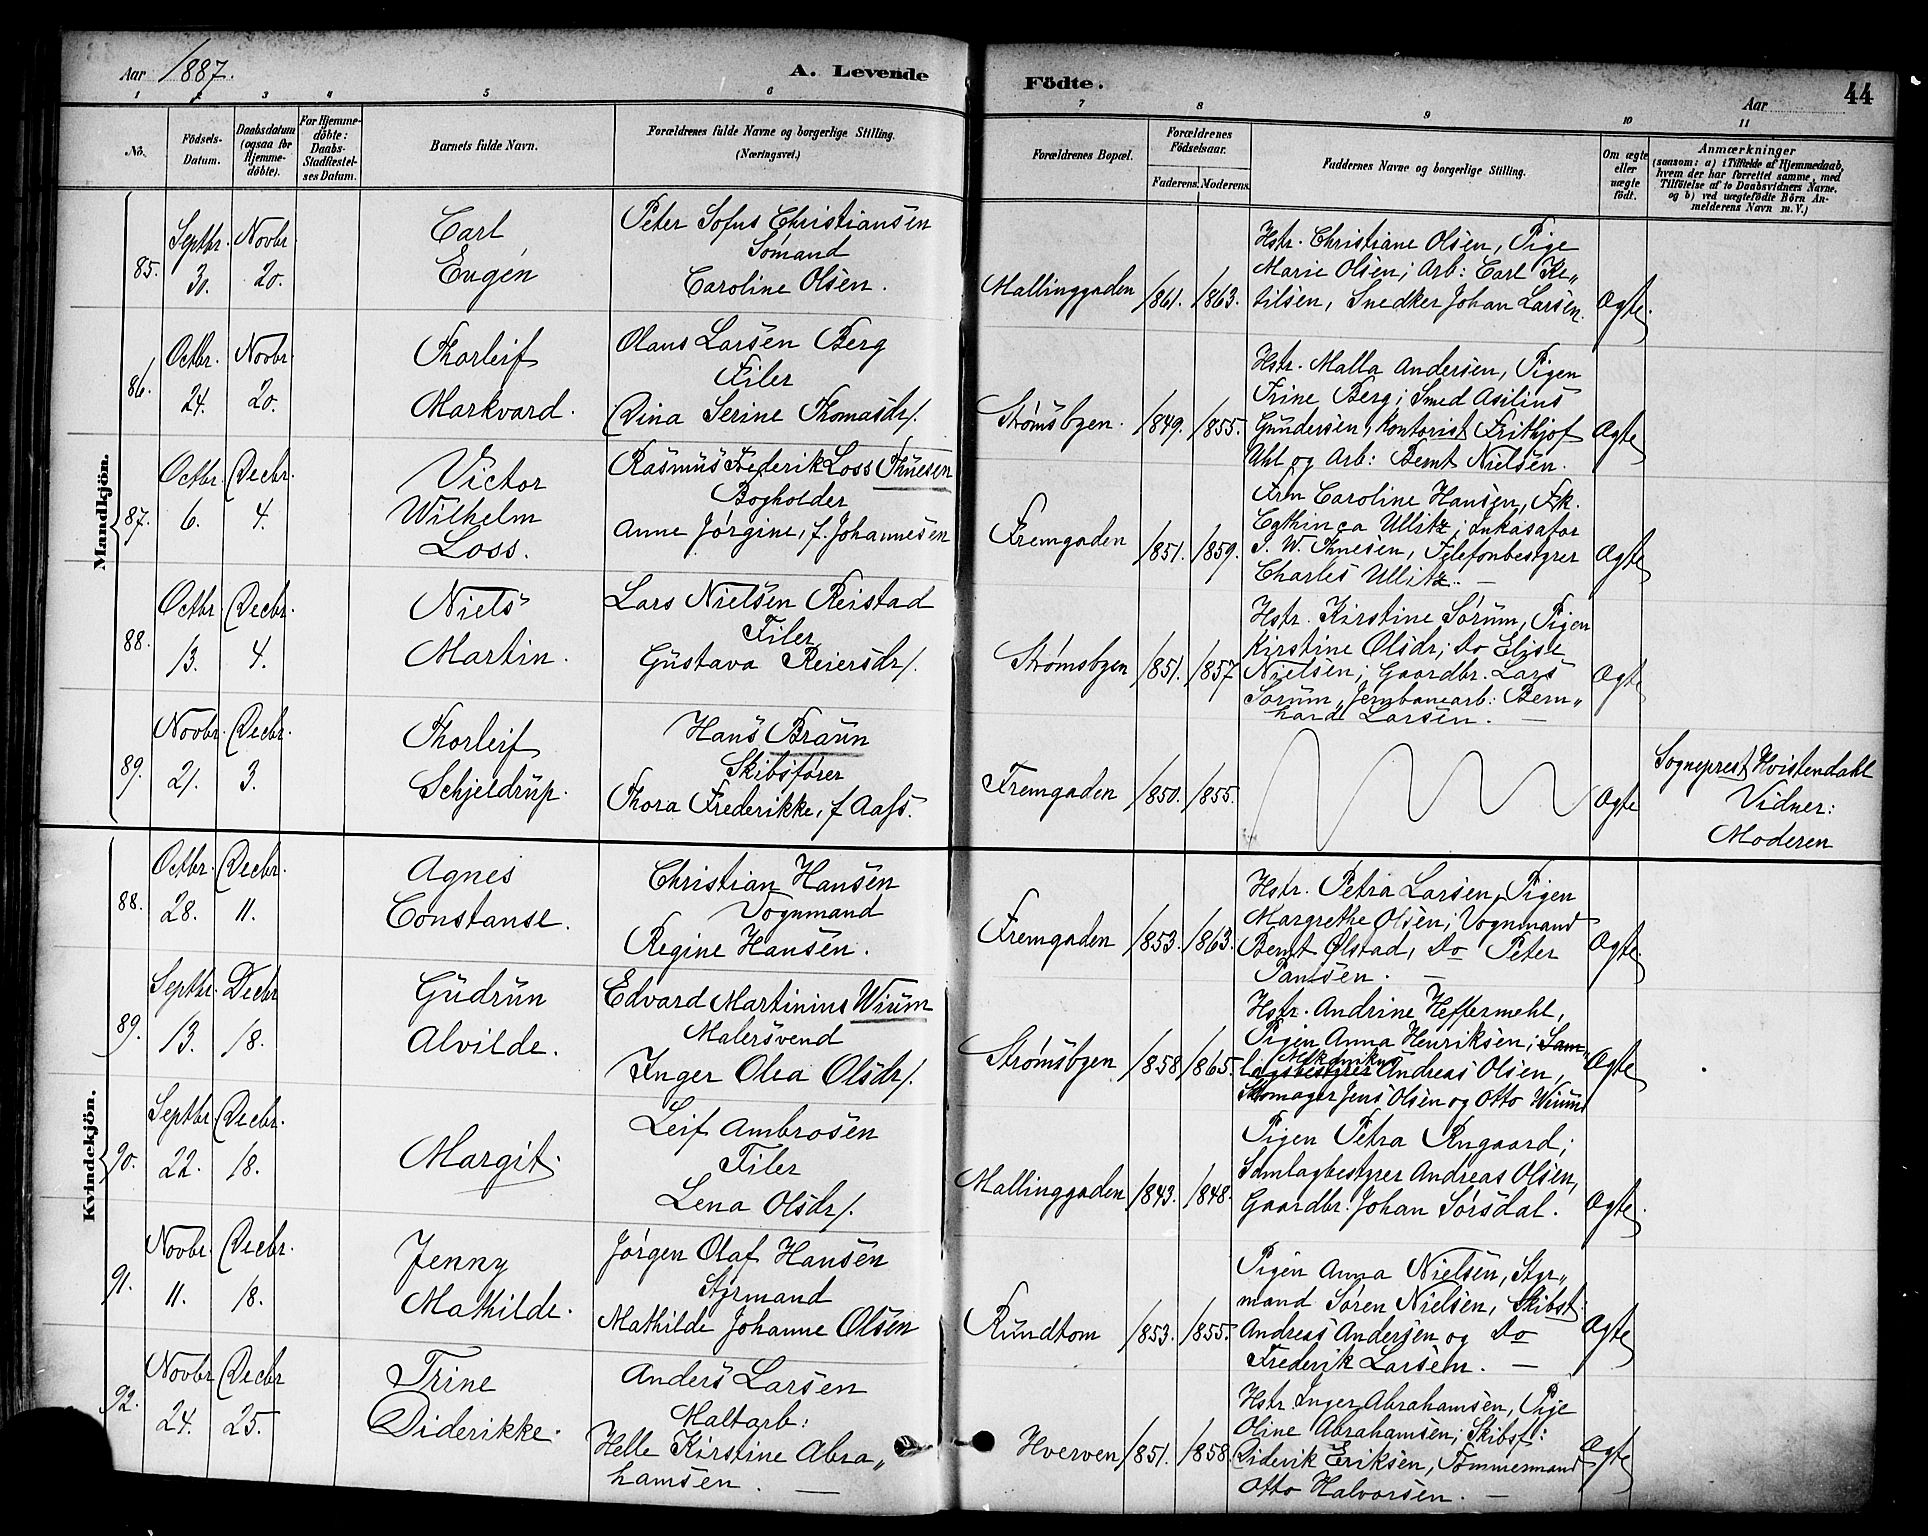 Aar 1887.
A. Levende
Födte.
Aar
44
1 2 3 4 5 6 7 8 9 10 11
No.
Födsels-Datum.
Daabsdatum (ogsaa for Hjemme-döbte).
For Hjemme-döbte: Daabs-Stadfæstel-ses Datum.
Barnets fulde Navn.
Forældrenes fulde Navne og borgerlige Stilling. (Næringsvei.)
Forældrenes Bopæl.
Forældrenes Födselsaar.
Faderens. Moderens.
Faddernes Navne og borgerlige Stilling.
Om ægte eller uægte födt.
Anmærkninger
(saasom: a) i Tilfælde af Hjemmedaab, hvem der har forrettet samme, med Tilföielse af to Daabsvidners Navne, og b) ved uægtefödte Börn An-melderens Navn m. V.)
Mandkjön.
85.
Septbr. 30.
Novbr. 20.
Carl
Eugén
Peter Sofus Christiansen
Sømand
Caroline Olsen.
Mallinggaden
1861. 1863.
Hstr. Christiane Olsen, Pige
Marie Olsen; Arb: Carl Ke„
tilsen, Snedker Johan Larsen.
Ægte.
86.
Octbr. 24.
Novbr. 20.
Thorleif
Markvard.
Olaus Larsen Berg
Filer
Dina Serine Thomasdr/.
Strømsbyen.
1849. 1855.
Hstr. Malla Andersen, Pigen
Trine Berg; Smed Asilius
Gundersen, Kontorist Frithjof
Uhl og Arb: Bernt Nielsen.
Ægte
87.
Octbr. 6.
Decbr. 4.
Victor
Wilhelm
Loss.
Rasmus Frederik Loss Thuesen
Bogholder
Anne Jørgine, f. Johannesen
Fremgaden
1851. 1859.
Fru Caroline Hansen, Frk.
Cathinca Ullitz; Inkasator
S. W. Thuesen, Telefonbestyrer
Charles Ullitz. —
Ægte
88.
Octbr. 13.
Decbr. 4.
Niels
Martin.
Lars Nielsen Reistad
Filer
Gustava Reiersdr/.
Strømsbyen
1851. 1857
Hstr. Kirstine Sørum, Pigen
Kirstine Olsdr; Do Elise
Nielsen; Gaardbr. Lars
Sørum, Jernbanearb: Bern„
hard Larsen. —
Ægte
89.
Novbr. 21.
Decbr. 3.
Thorleif
Schjeldrup.
Hans Braun
Skibsfører
Thora Frederikke, f Aass.
Fremgaden
1850. 1855.
Ægte
Sogneprest Hvistendahl
Vidner:
Moderen
Kvindekjön.
88.
Octbr. 28.
Decbr. 11.
Agnes
Constanse.
Christian Hansen
Vognmand
Regine Hansen.
Fremgaden
1853. 1863.
Hstr. Petra Larsen, Pigen
Margrethe Olsen; Vognmand
Bernt Ølstad, Do Peter
Paulsen. —
Ægte.
89.
Septbr. 13.
Decbr 18.
Gudrun
Alvilde.
Edvard Martinius Wium
Malersvend
Inger Olea Olsdr/.
Strømsbyen
1858 1865.
Hstr. Andrine Heftermehl,
Pigen Anna Henriksen; Sam-
lagsbestyrer Mekanikus Andreas Olsen,
Skomager Jens Olsen og Otto Wium
Ægte
90.
Septbr 22.
Decbr. 18.
Margit.
Leif Ambrosen
Filer
Lena Olsdr/.
Mallinggaden
1843. 1848.
Pigen Petra Rngaard;
Samlagbestyrer Andreas Olsen,
Gaardbr. Johan Sørsdal.
Ægte.
91.
Novbr. 11.
Decbr. 18.
Jenny
Mathilde.
Jørgen Olaf Hansen
Styrmand
Mathilde Johanne Olsen
Rundtom
1853. 1855.
Pigen Anna Nielsen, Styr„
mand Søren Nielsen, Skibst.
Andreas Andersen og Do
Frederik Larsen. —
Ægte
92.
Novbr 24.
Decbr 25.
Trine
Diderikke.
Anders Larsen
Maltarb:
Helle Kirstine Abra„
hamsen. —
Hverven
1851. 1858.
Hstr. Inger Abrahamsen, Pige
Oline Abrahamsen; Skibst:
Diderik Eriksen, Tømmermand
Otto Halvorsen. —
Ægte